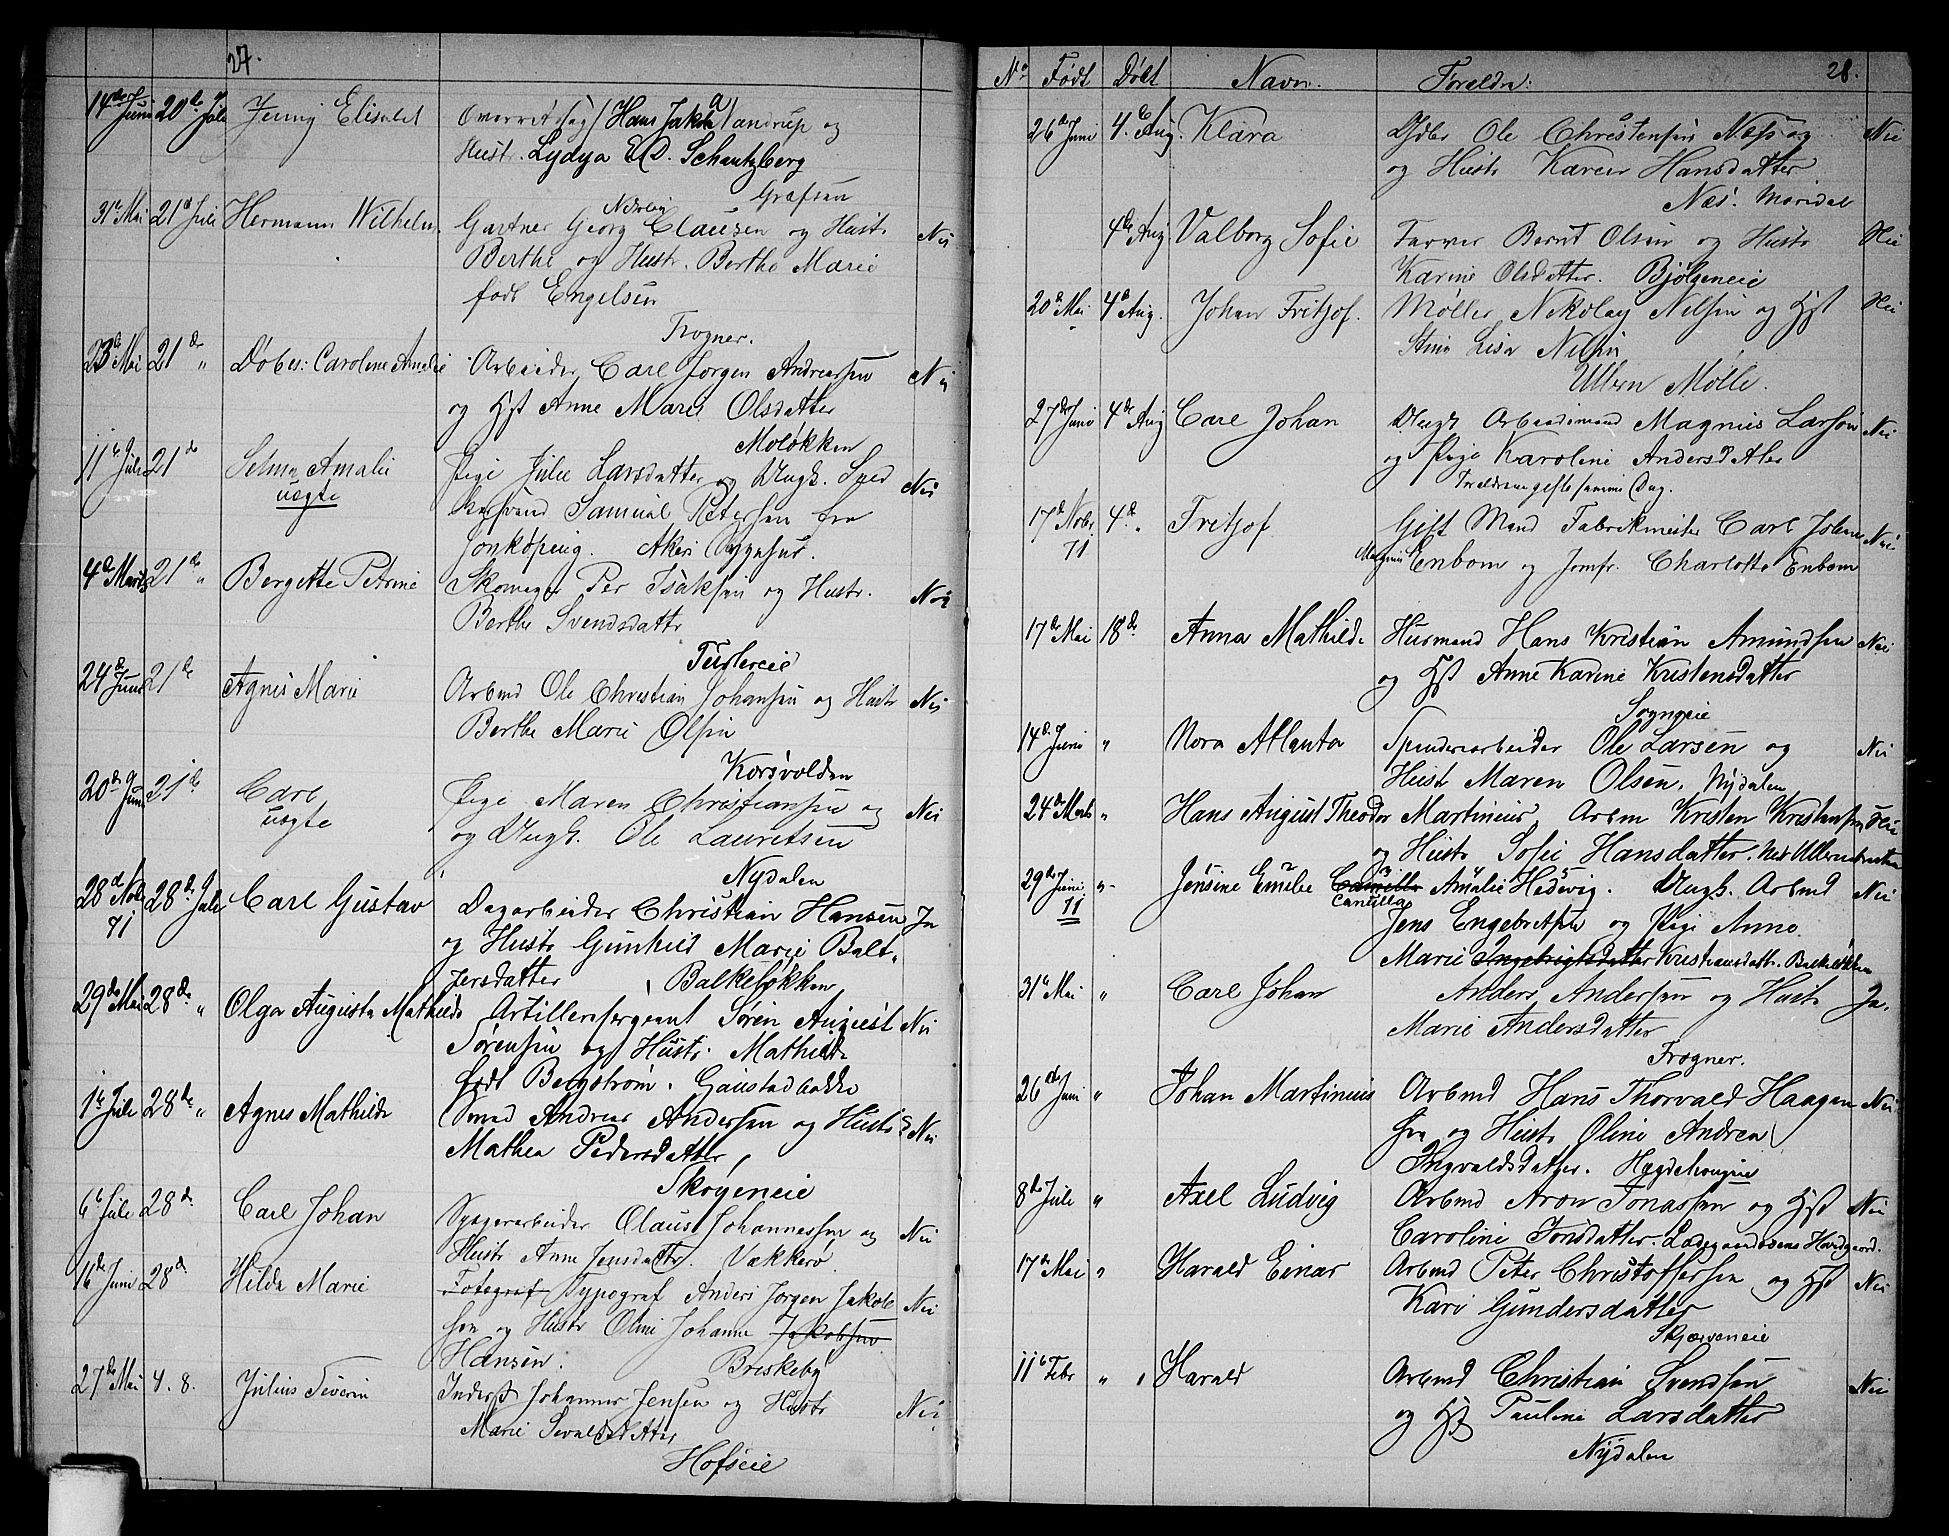 27.
14de Juni 20de Juli Jenny Elisabet Overretssag Hans Jakob Tandrup og
Hustr. Lydya E.D. Schantzberg
Grafsen
31te Mai 21de Juli Hermann Wilhelm. Gartner Georg Clausen og Hustr Nei
Berthe og Hustr. Berthe Marie
født Engelsen
Frogner.
23de Mai 21de " Døbes: Caroline Amalie Arbeider Carl Jørgen Andreassen Nei
og Hst Anne Marie Olsdatter
Moløkken
11te Juli 21de Selma Amalie Pige Julie Larsdatter og Ungk. Sned Nei
uægte kersvend Samuel Petersen fra
Jonkøping. Akers Sygehus.
4de Marts 21de " Bergette Petrine Skomager Per Isaksen og Hustr. Nei
Berthe Svendsdattr
24de Juni 21de Agnes Marie Arbmd Ole Christian Johansen og Hustr Nei
Berthe Marie Olsen
Korsvolden
20de Juni 21de Carl Pige Maren Christiansen og Nei
uægte og Ungk. Ole Lauritsen
Nydalen
28de Nobr 28de Juli Carl Gustav Dagarbeider Christian Hansen Ja
71 og Hustr Gunhild Marie Balt-
zersdatter Balkeløkken
29de Mai 28de " Olga Augusta Mathilde Artillerisergeant Søren August Nei
Sørensen og Hustr. Mathilde
født Bergstrøm. Gaustadbakke
1te Juli 28de " Agnes Mathilde Smed Andreas Andersen og Hustr Nei
Mathea Pedersdatter
Skøyeneie
6te Juli 28de Carl Johan Olaus Johannessen og Nei
Hustr Anne Jensdattr. Vækkerø
16de Juni 28de Hilda Marie Fotograf Typograf Anders Jørgen Jakob Nei
sen og Hustr Oline Johanne Jakobsen
Hansen. Briskeby
27de Mai 4.8. Julius Severin Inderst Johannes Jensen og Hustr Nei
Marie Sevaldsdatter
Hofseie
28.
No Født Døbt Navn. Forældre:
26de Juni 4de Aug. Klara Gdbr Ole Christensen Næs og Nei
og Hustr Karen Hansdatter
Næs. Maridal
4de Aug Valborg Sofie Farver Bernt Olsen og Hustr Nei
Karine Olsdatter. Bjølseneie
20de Mai 4de Aug. Johan Fritjof. Møller Nikolay Nilsen og Hst Nei
Stina Lisa Nilsen
Ullern Mølle.
27de Juni 4de Aug Carl Johan Ungk Arbeidsmand Magnus Larson Nei
og Pige Karoline Andersdatter
Forældrene gifte samme Dag.
17de Nobr 4de " Fritjof Gift Mand Fabrikmester Carl Johan Nei
71 Magnus Enbom og Jomfr. Charlotte Enbom
17de Mai 18de Anna Mathilde Husmand Hans Kristian Amundsen Nei
og Hst Anne Karine Kristensdatter
Sogneie
14de Juni " Nora Atlanta Spinderiarbeider Ole Larsen og Nei
Hust Maren Olsen. Nydalen
24de Marts " Hans August Theodor Martinius Arbm Kristen Kristensen Nei
og Hustr Sofie Hansdatter.
29de Juni " Jensine Emelie Camilla Amalie Hedevig. Ungk. Arbmd Nei
71 Camilla Jens Engebretsen og Pige Anne
Marie Ingebrigtsdatter Kristiansdatt. Balkeløkken
31te Mai " Carl Johan Anders Andersen og Hustr Ja.
Marie Andersdatter
Frogner.
26de Juni " Johan Martinius Arbmd Hans Thorvald Haagen Nei
sen og Hustr Oline Andrea
Ingvaldsdatter.
8de Juli " Axel Ludvig Arbmd Aron Jonassen og Hst Nei
Caroline Jonsdatter. Ladegaardsøens Hovdgaard.
17de Mai " Harald Einar Arbmd Peter Christoffersen og Hst Nei
Kari Gundersdatter
Skjærveneie
11te Febr " " Harald Arbmd Christian Svendsen Nei
og Hst Pauline Larsdatter
Nydalen